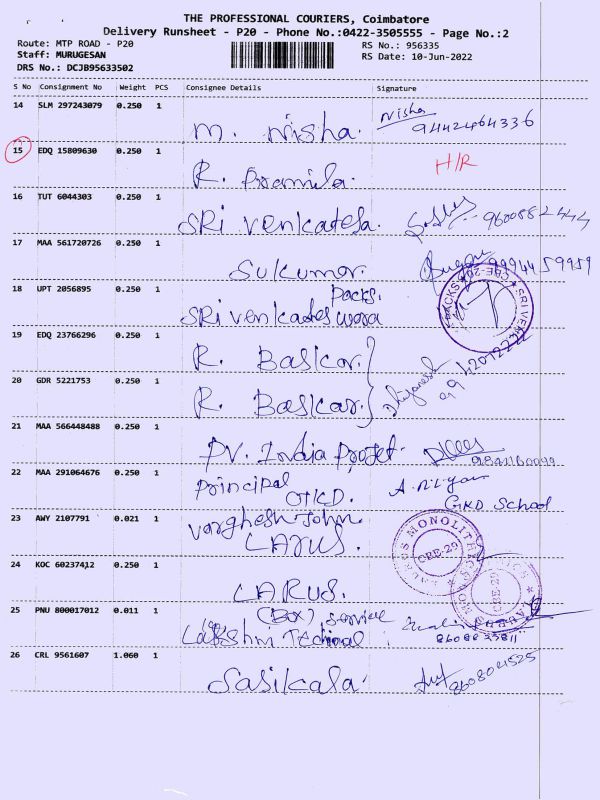 THE PROFESSIONAL COURIERS, Coimbatore
Delivery Runsheet - P20 - Phone No.:0422-3505555 - Page No.:2
Route: MTP ROAD - P20
RS No.: 956335
Staff: MURUGESAN
RS Date: 10-Jun-2022
DRS No.: DCJB95633502
S No Consignment No Weight PCS Consignee Details Signature
14 SLM 297243079 0.250 1 M. Nisha. Nisha 9442464336
15 EDQ 15809630 0.250 1 R. Pramila. H/R
16 TUT 6044303 0.250 1 SRi Venkatesa. 9600882444
17 MAA 561720726 0.250 1 Sukumar. 9994459959
18 UPT 2056895 0.250 1 SRi Venkateswara Packs.
19 EDQ 23766296 0.250 1 R. Baskar.
20 GDR 5221753 0.250 1 R. Baskar.
21 MAA 566448488 0.250 1 PV. India Projet.
22 MAA 291064676 0.250 1 Principal GKD. GKD School
23 AWY 2107791 0.021 1 Varghesh John. LARUS.
24 KOC 60237412 0.250 1 LARUS.
25 PNU 800017012 0.011 1 (Box) Service Lakshmi
26 CRL 9561607 1.060 1 Sasikala.